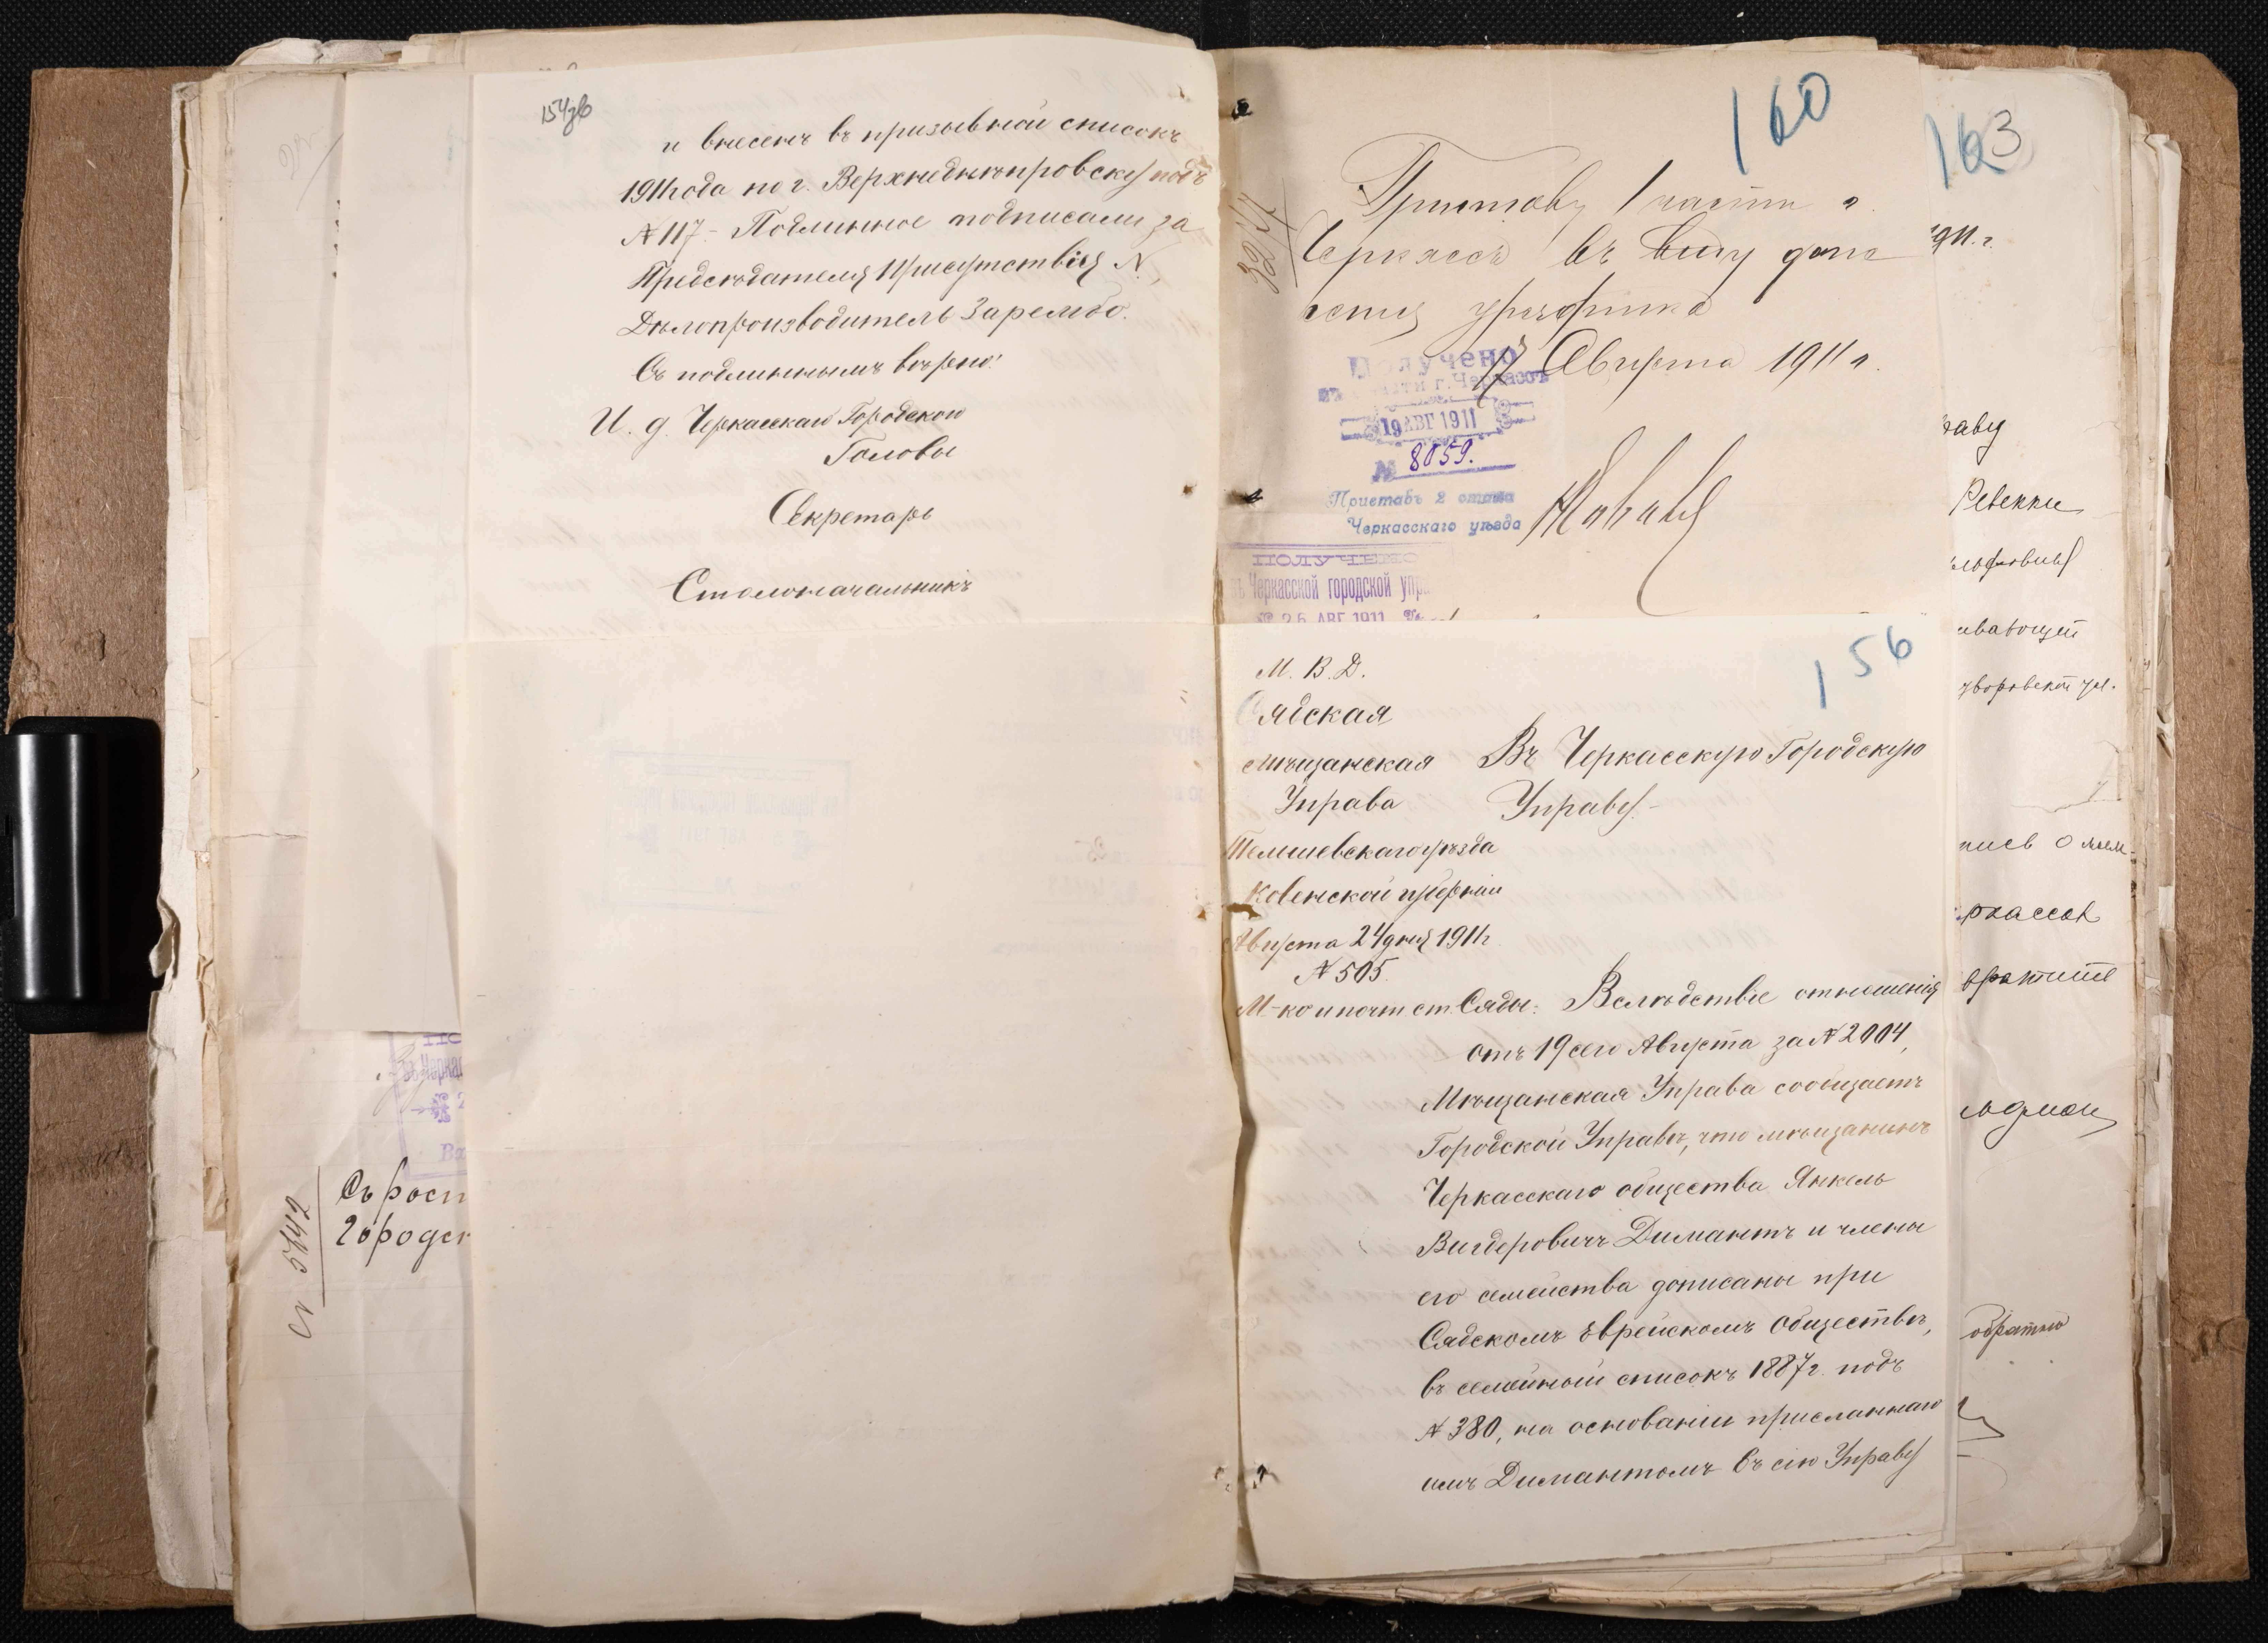 154зв
и внесенъ въ призывной списокъ
1911 года по г. Верхнеднѣпровску подъ
№ 117.- Подлинное подписали за
Предсѣдателя Присутствія N.,
Дѣлопроизводитель Зарембо.
Съ подлиннымъ вѣрно:
И. д. Черкасскаго Городского
Головы
Секретарь
Столоначальникъ
Ст 5642
Съ росп
городск
160
Приставу 1 части г.
Черкассъ въ виду доне
сенія урядника
17 Августа 1911 г.
Получено
г. Черкассъ
19 АВГ 1911
№ 8059.
Приставъ 2 стана
Черкасскаго уѣзда
ПОЛУЧЕНО
въ Черкасской городской упр
26 АВГ 1911
156
М. В. Д.
Сядская
мѣщанская
Управа
Тельшевскаго уѣзда
Ковенской губерніи
Августа 24 дня 1911 г.
№ 505.
М-ко и почт. ст. Сяды.
Въ Черкасскую Городскую
Управу.-
Вслѣдствіе отношенія
отъ 19 сего Августа за № 2004,
Мѣщанская Управа сообщаетъ
Городской Управѣ, что мѣщанинъ
Черкасскаго общества Янкель
Вигдеровичъ Димантъ и члены
его семейства дописаны при
Сядскомъ Еврейскомъ Обществѣ,
въ семейный списокъ 1887 г. подъ
№ 380, на основаніи присланнаго
имъ Димантомъ въ сію Управу
163
1911. г.
раву
Ревекки
ивающей
ркассы
обратно